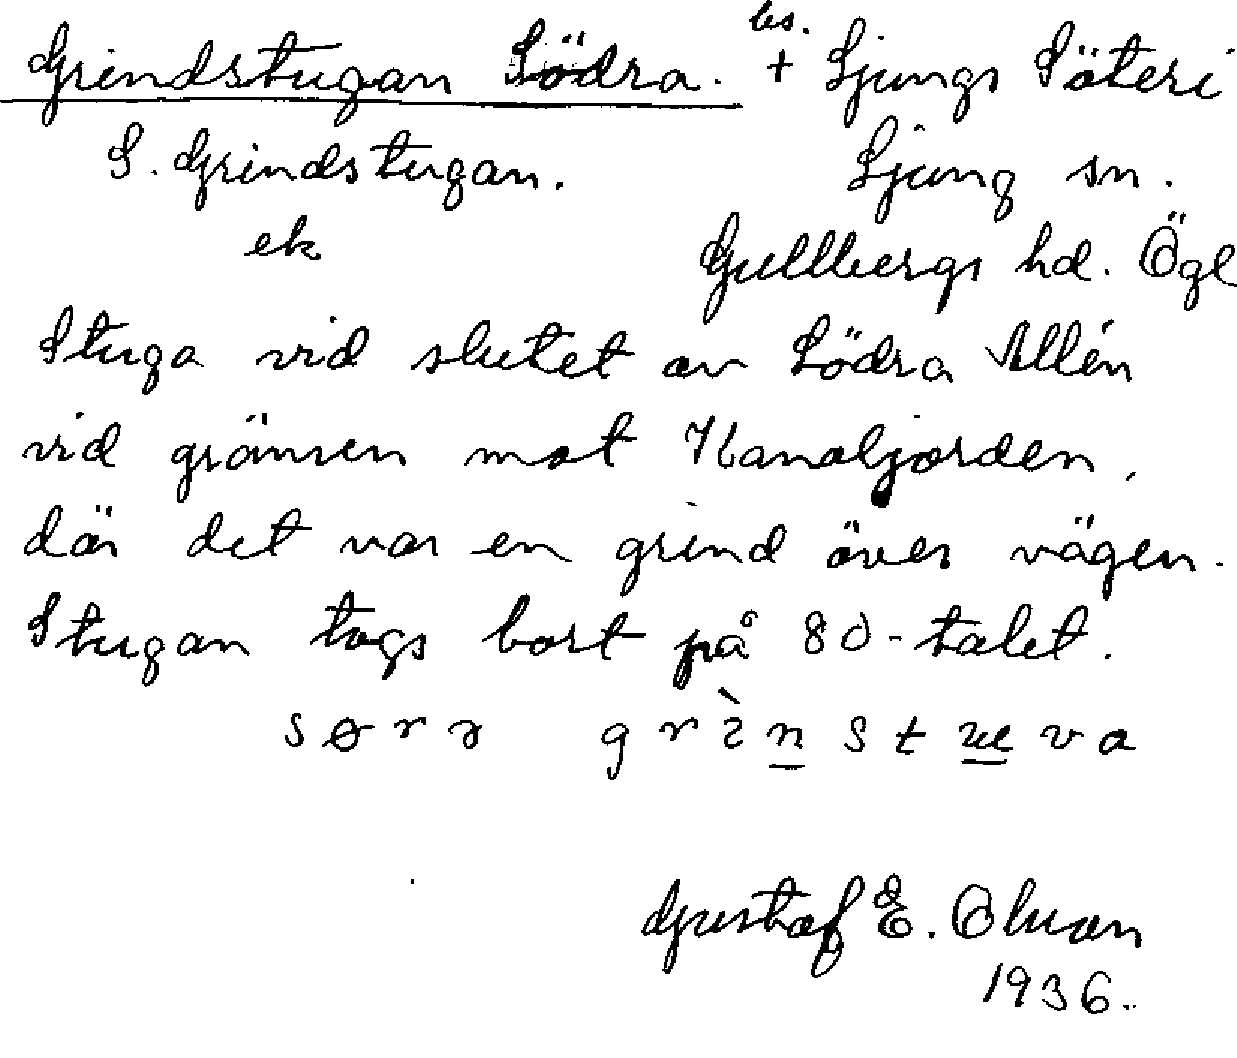 bs.
Grindstugan Södra. + Ljungs Säteri
S. Grindstugan. Ljung sn.
ek Gullbergs hd. Ögl
Stuga vid slutet av Södra Allén
vid gränsen mot Kanaljorden,
där det var en grind över vägen.
Stugan togs bort på 80-talet.
sørə grìnstuva
Gustaf E. Olson
1936.